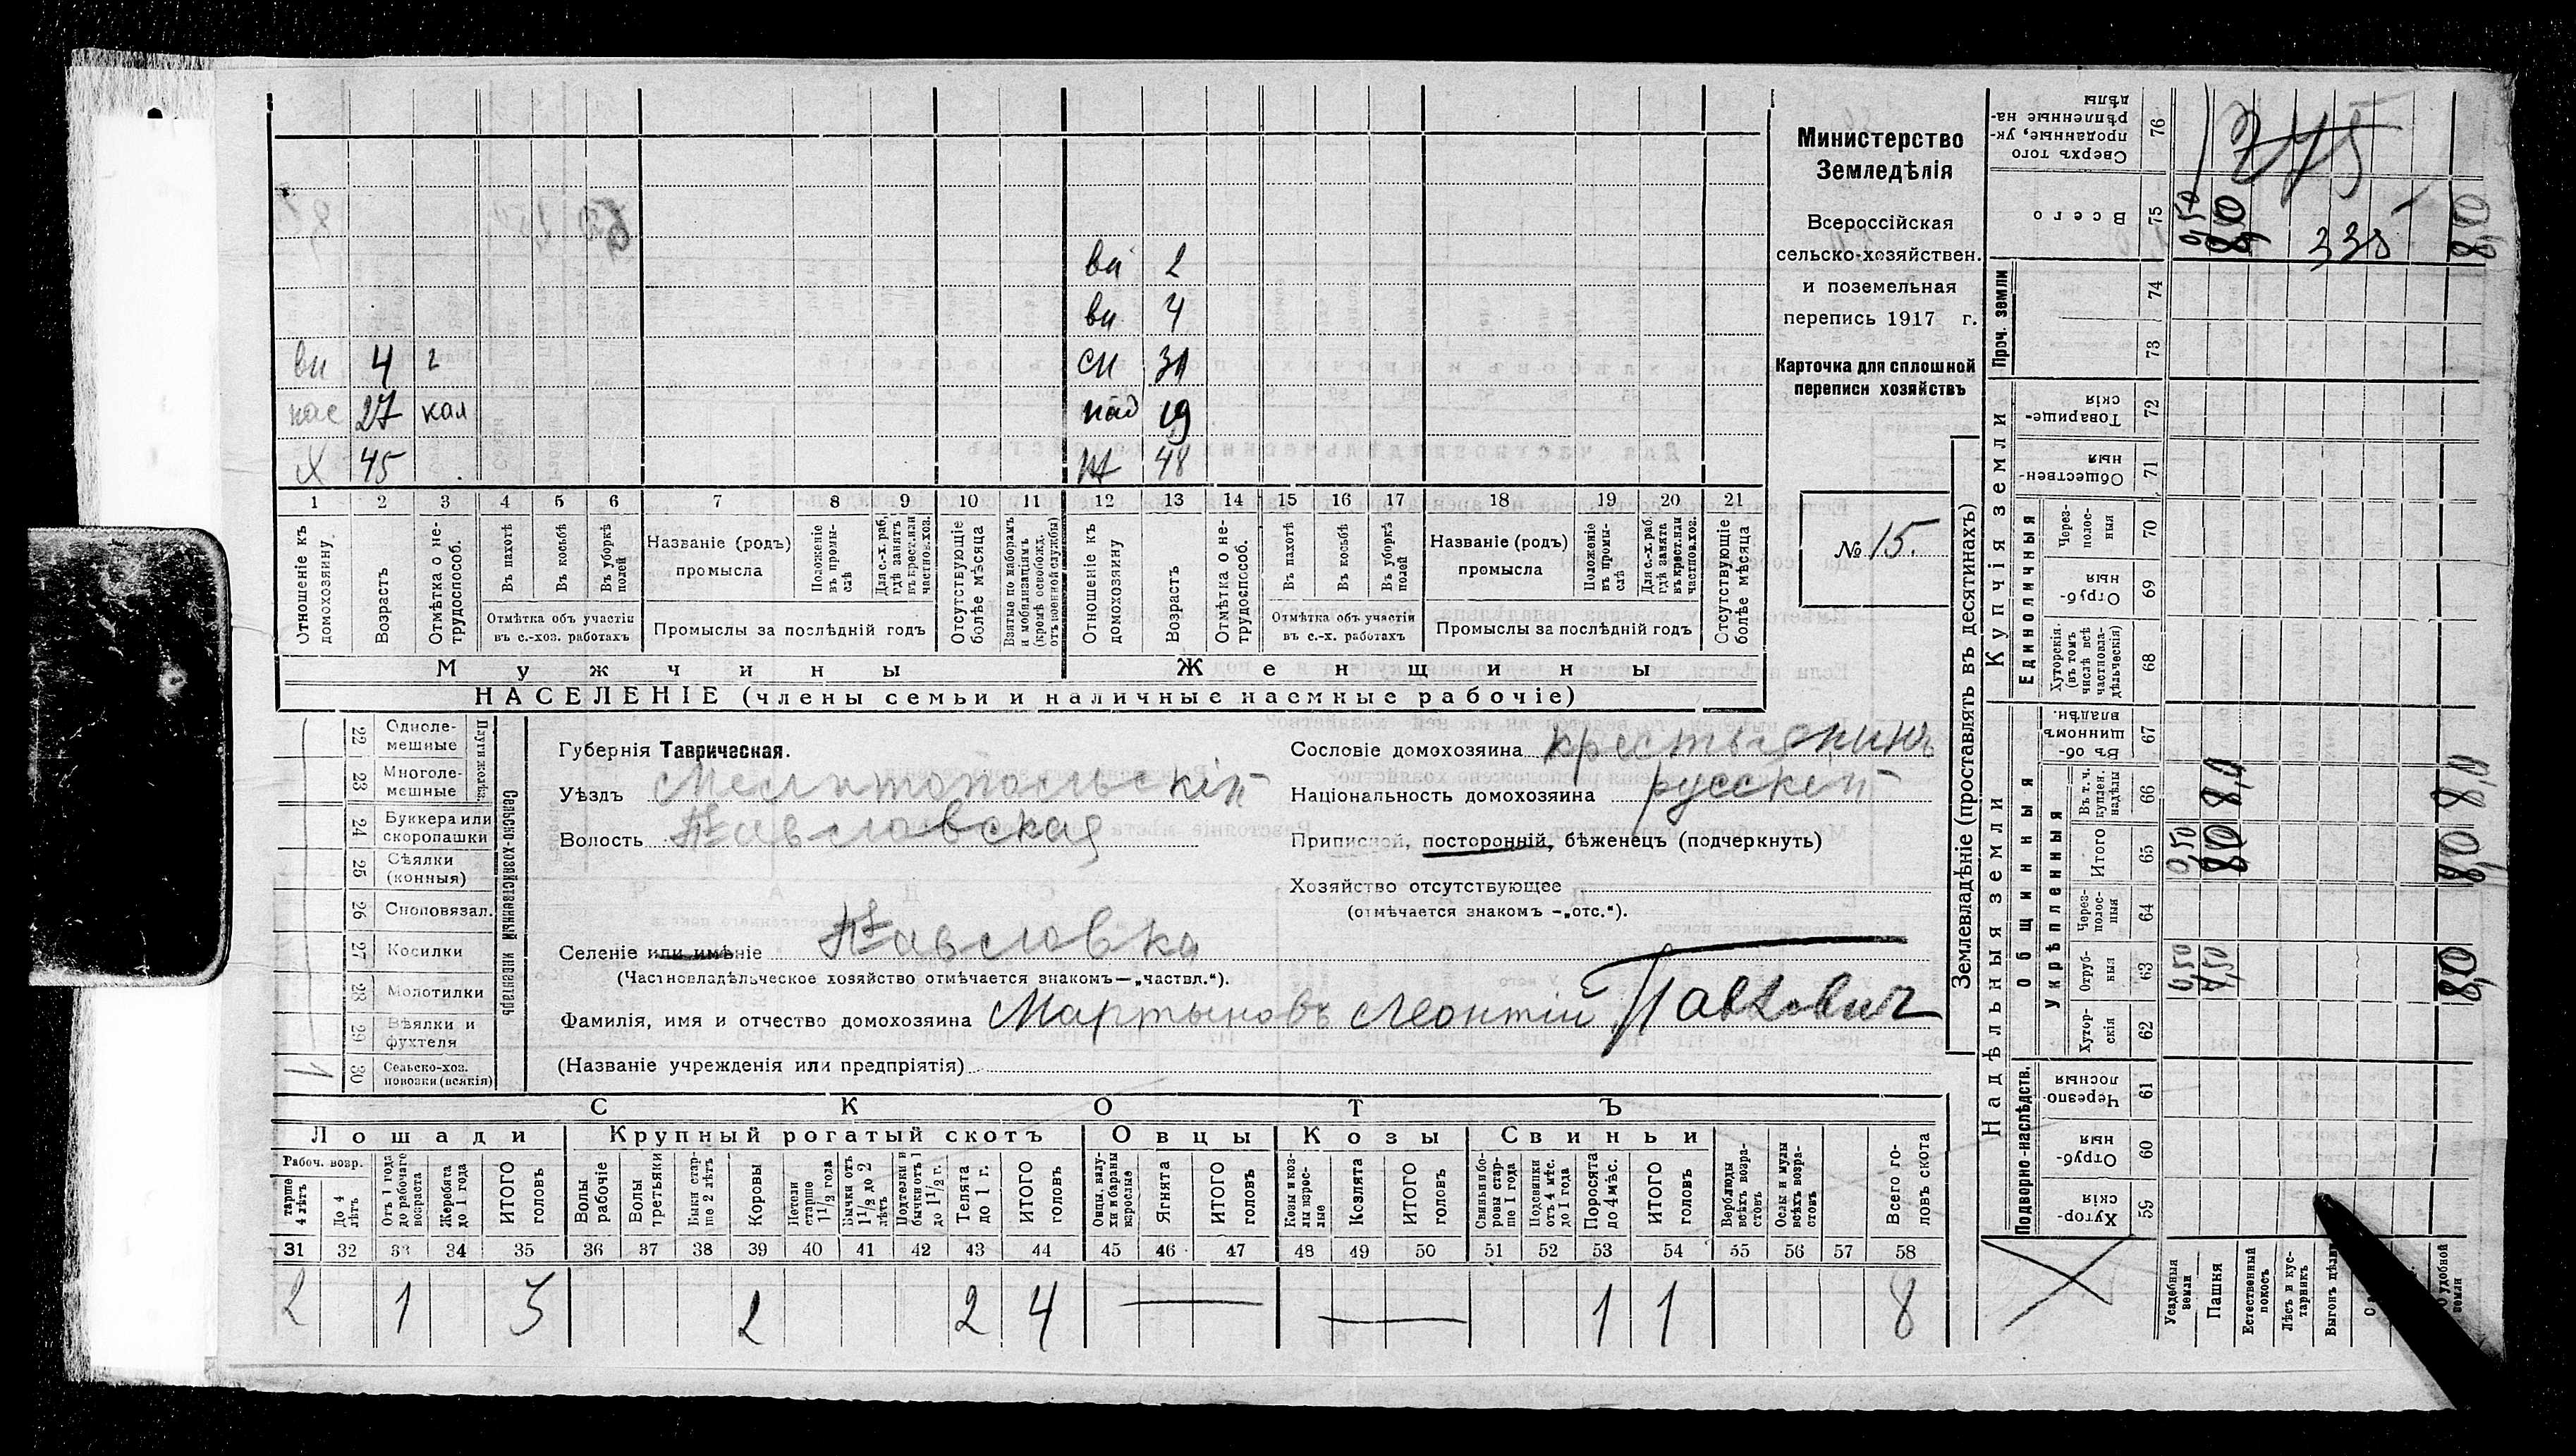 Министерство
Земледѣлія
Всероссійская
сельско-хозяйствен.
и поземельная
перепись 1917 г.
Карточка для сплошной
переписи хозяйствъ
№ 15.
ви 2
ви 4
ви 4 г сн 31
пас 27 кал пад 19
х 45 48
1 2 3 4 5 6 7 8 9 10 11 12 13 14 15 16 17 18 19 20 21
Отношеніе къ домохозяину.
Возрастъ
Отмѣтка о не-трудоспособ.
Въ пахотѣ
Въ косьбѣ
Въ уборкѣ полей
Отмѣтка объ участіи въ с.-хоз. работахъ
Названіе (родъ) промысла
Положеніе въ промы-слѣ
Для с.-х. раб. гдѣ занятъ въ крест. или частнов. хоз.
Промыслы за послѣдній годъ
Отсутствующіе болѣе мѣсяца
Взятые по наборамъ и мобилизаціямъ (кромѣ освобожд. отъ военной службы)
Отношеніе къ домохозяину
Возрастъ
Отмѣтка о не-трудоспособ.
Въ пахотѣ
Въ косьбѣ
Въ уборкѣ полей
Отмѣтка объ участіи въ с.-х. работахъ
Названіе (родъ) промысла
Положеніе въ промы-слѣ
Для с.-х. раб. гдѣ занята въ крест. или частнов. хоз.
Промыслы за послѣдній годъ
Отсутствующіе болѣе мѣсяца
Мужчины Женщины
НАСЕЛЕНІЕ (члены семьи и наличные наемные рабочіе)
22 Одноле-мешные
23 Многоле-мешные
24 Буккера или скоропашки
25 Сѣялки (конныя)
26 Сноповязал.
27 Косилки
28 Молотилки
29 Вѣялки и фухтеля
1 30 Сельско-хоз. повозки (всякія)
Сельско-хозяйственный инвентарь
Губернія Таврическая.
Уѣздъ Мелитопольскій
Волость Павловская
Селеніе или имѣніе Павловка
(Частновладѣльческое хозяйство отмѣчается знакомъ—„частвл.“).
Фамилія, имя и отчество домохозяина Мартыновъ Леонтій Павлович
(Названіе учрежденія или предпріятія)
Сословіе домохозяина крестьянинъ
Національность домохозяина русскій
Приписной, посторонній, бѣженецъ (подчеркнуть)
Хозяйство отсутствующее
(отмѣчается знакомъ —„отс.“).
СКОТЪ
Лошади Крупный рогатый скотъ Овцы Козы Свиньи
Рабоч. возр.
тарше 4 лѣтъ
До 4 лѣтъ
Отъ 1 года до рабочаго возраста
Жеребята до 1 года
ИТОГО головъ
Волы рабочіе
Волы третьяки
Быки стар-ше 2 лѣтъ
Коровы
Нетели старше 1½ года
Бычки отъ 1½ до 2 лѣтъ
Подтелки и бычки отъ 1 до 1½ г.
Телята до 1 г.
ИТОГО головъ
Овцы, валу-хи и бараны взрослые
Ягнята
ИТОГО головъ
Козы и коз-лы взрос-лые
Козлята
ИТОГО головъ
Свиньи и бо-ровы стар-ше 1 года
Подсвинки отъ 4 мѣс. до 1 года
Поросята до 4 мѣс.
ИТОГО головъ
Верблюды всѣхъ возра-стовъ
Ослы и мулы всѣхъ возра-стовъ
Всего го-ловъ скота
31 32 33 34 35 36 37 38 39 40 41 42 43 44 45 46 47 48 49 50 51 52 53 54 55 56 57 58
2 1 3 2 2 4 — — 1 1 8
Землевладѣніе (проставлять въ десятинахъ)
Надѣльныя земли Купчія земли Проч. земли
Подворно-наслѣдств.
Общинныя
Укрѣпленныя
Единоличныя
Сверхъ того проданные, ук-рѣпленные на-дѣлы 76 745
Всего 75 0,50 8,0 335 8,0
74
73
Товарище-скія 72
Обществен-ныя 71
Через-полос-ныя 70
Отруб-ныя 69
Хуторскія. (въ томъ числѣ всѣ частновла-дѣльческія) 68
Въ об-щинномъ владѣн. 67
Въ т. ч. куплен. надѣлы 66 8,0 8,0
Итого 65 0,50 8,0 8,0
Через-полос-ныя 64
Отруб-ныя 63 0,50 7,50 8,0
Хутор-скія 62
Черезпо-лосныя 61
Отруб-ныя 60
Хутор-скія 59
Усадебныя земли
Пашня
Естественный покосъ
Лѣсъ и кус-тарникъ
Выгонъ
удобной земли